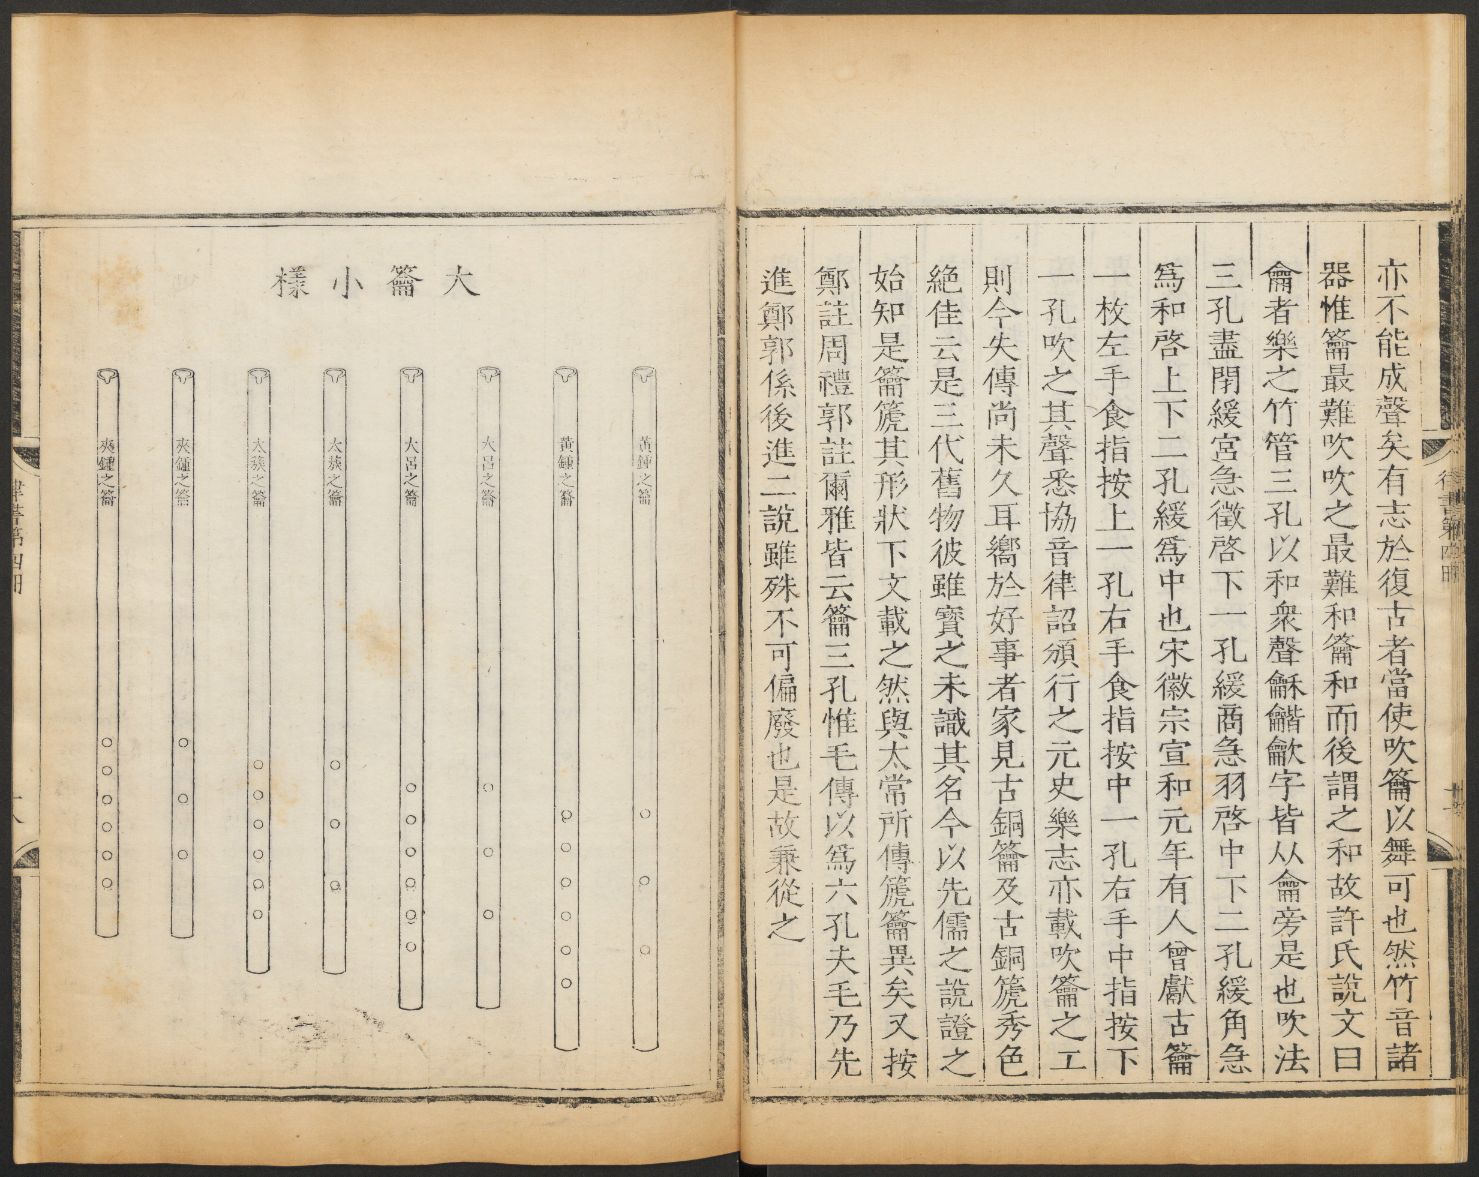 亦不能成聲矣有志於復古者當使吹籥以舞可也然竹音諸
器惟籥最難吹吹之最難和籥和而後謂之和故許氏說文曰
龠者樂之竹管三孔以和衆聲龢龤龡字皆从龠旁是也吹法
三孔盡閉緩宮急徵啓下一孔緩商急羽啓中下二孔緩角急
爲和啓上下二孔緩爲中也宋徽宗宣和元年有人曾獻古籥
一枚左手食指按上一孔右手食指按中一孔右手中指按下
一孔吹之其聲悉協音律詔頒行之元史樂志亦載吹籥之工
則今失傳尚未久耳嚮於好事者家見古銅籥及古銅箎秀色
絕佳云是三代舊物彼雖寶之未識其名今以先儒之說證之
始知是籥箎其形狀下文載之然與太常所傳箎籥異矣又按
鄭註周禮郭註爾雅皆云籥三孔惟毛傳以爲六孔夫毛乃先
進鄭郭係後進二說雖殊不可偏廢也是故兼從之
大籥小樣
黃鍾之籥
黃鍾之籥
大呂之籥
大呂之籥
太蔟之籥
太蔟之籥
夾鍾之籥
夾鍾之籥
律書第四冊